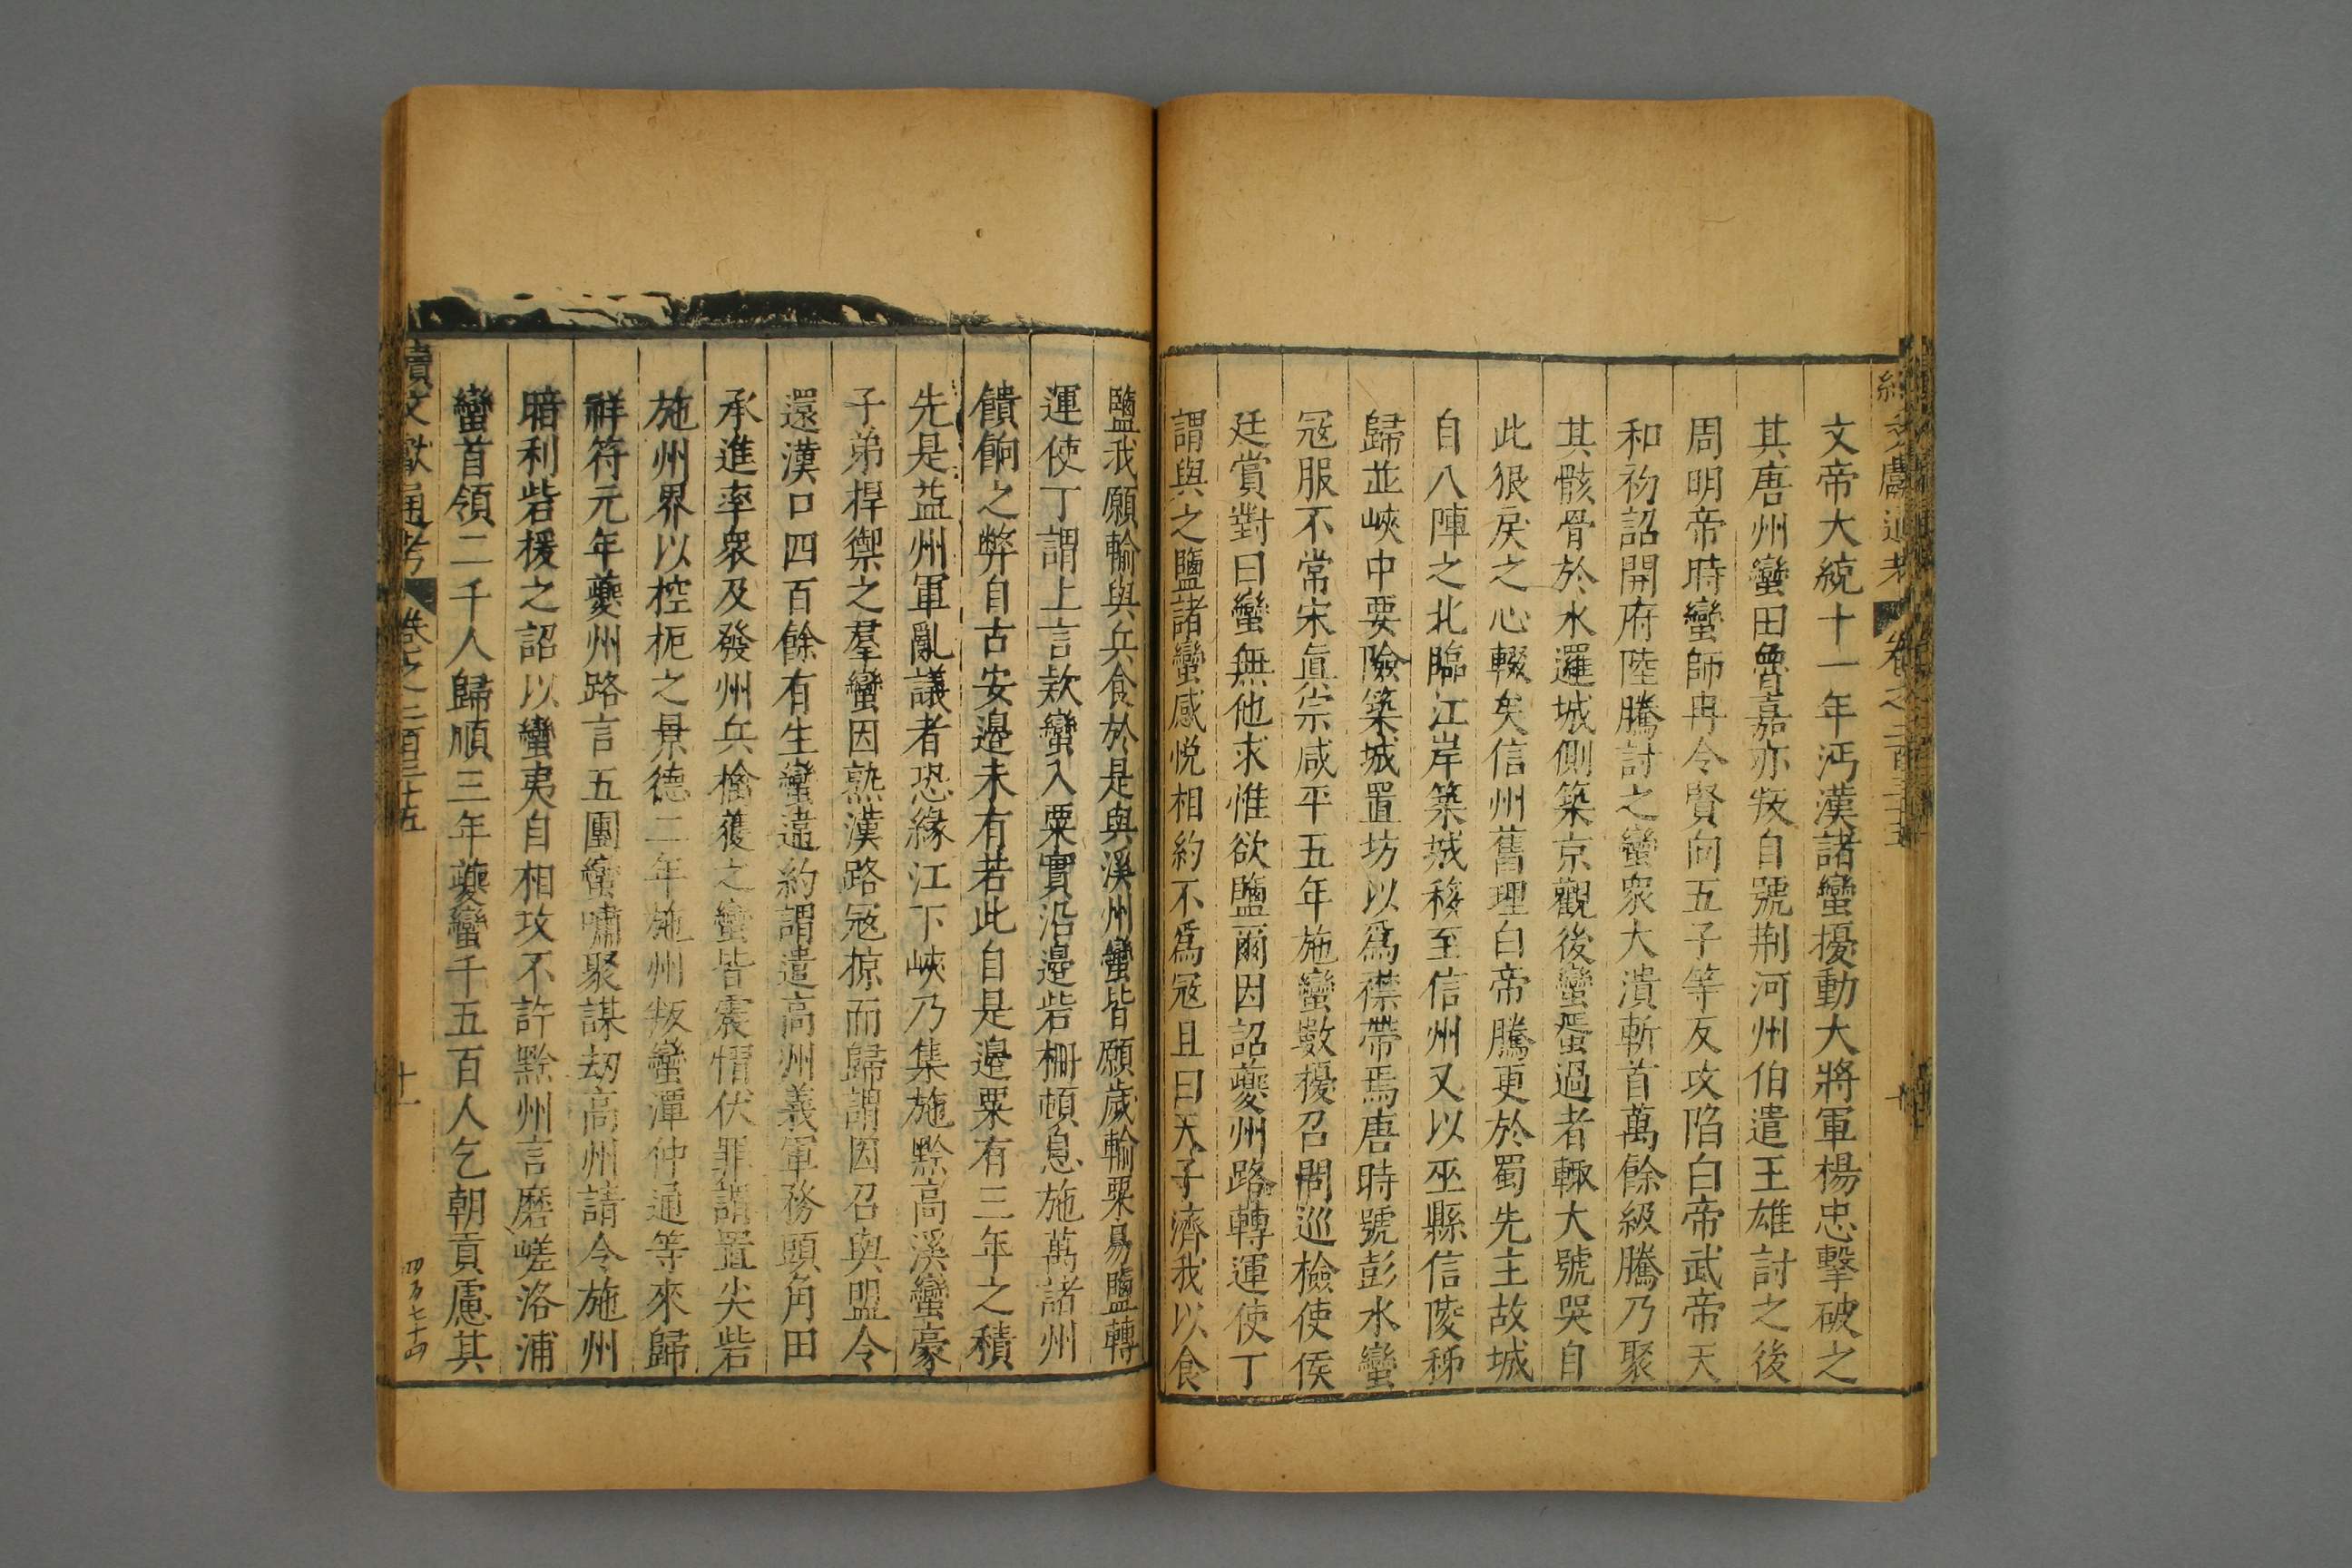 續文獻通考 卷之二百三十五
文帝大統十一年沔漢諸蠻擾動大將軍楊忠擊破之
其唐州蠻田魯嘉亦叛自號荆河州伯遣王雄討之後
周明帝時蠻師冉令賢向五子等反攻陷白帝武帝天
和初詔開府陸騰討之蠻衆大潰斬首萬餘級騰乃聚
其骸骨於水邏城側築京觀後蠻蜑過者輙大號哭自
此狠戾之心輟矣信州舊理白帝騰更於蜀先主故城
自八陣之北臨江岸築城移至信州又以巫縣信陵秭
歸並峽中要險築城置坊以爲襟帶焉唐時號彭水蠻
冦服不常宋眞宗咸平五年施蠻數擾召問巡檢使侯
廷賞對曰蠻無他求惟欲鹽爾因詔夔州路轉運使丁
謂與之鹽諸蠻感悅相約不爲冦且曰天子濟我以食
鹽我願輸與兵食於是與溪州蠻皆願歲輸粟易鹽轉
運使丁謂上言欵蠻入粟實沿邉砦栅頓息施萬諸州
饋餉之弊自古安邉未有若此自是邉粟有三年之積
先是益州軍亂議者恐緣江下峽乃集施黔高溪蠻豪
子弟捍禦之羣蠻因熟漢路冦掠而歸謂因召與盟令
還漢口四百餘有生蠻違約謂遣高州義軍務頭角田
承進率衆及發州兵擒獲之蠻皆震慴伏罪謂置尖砦
施州界以控扼之景德二年施州叛蠻潭仲通等來歸
祥符元年夔州路言五團蠻嘯聚謀刼高州請令施州
暗利砦援之詔以蠻夷自相攻不許黔州言磨嵯洛浦
蠻首領二千人歸順三年夔蠻千五百人乞朝貢慮其
續文獻通考 卷之二百三十五 十一
四百七十四